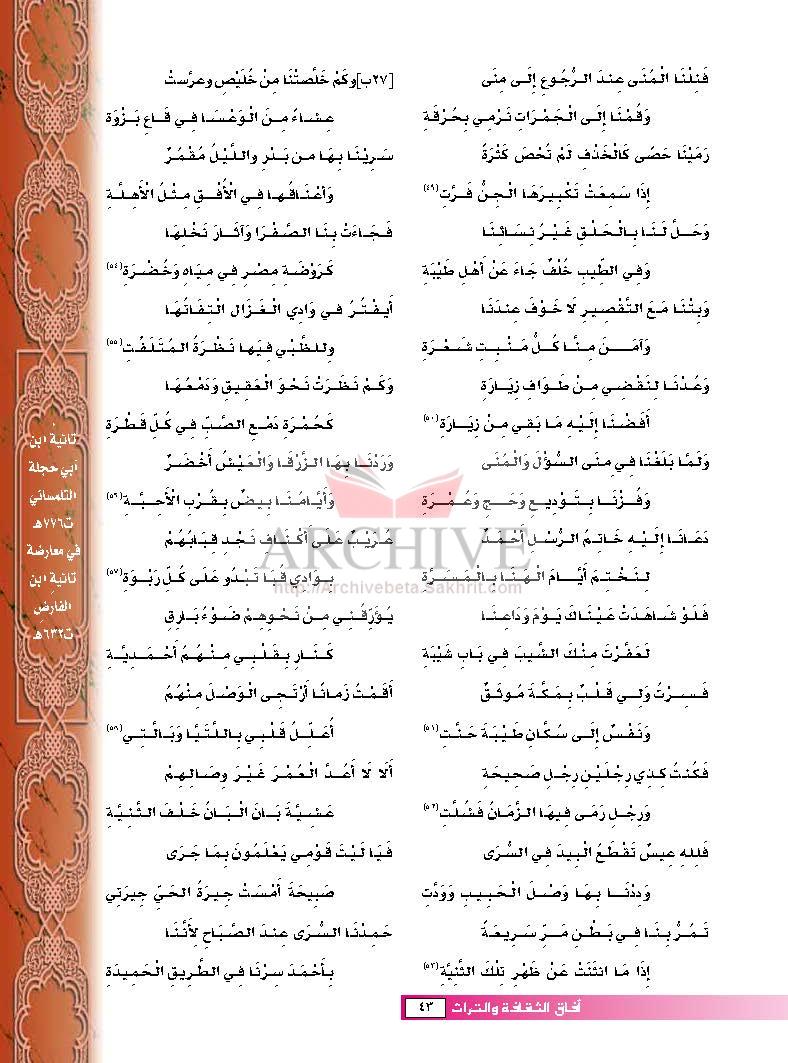 فَنِلْنَا الْمُنَى عِندَ الرُّجُوعِ إِلَى مِنَى
وَقُمْنَا إِلَى الْجَمْرَاتِ نَرْمِي بِحُرْقَةِ
رَمَيْنَا حَصًى كَالْخَذْفِ لَمْ تُحْصَ كَثْرَةً
إِذَا سَمِعَتْ تَكْبِيرَهَا الْجِنُّ فَرَّتِ(٤٩)
وَحَلَّ لَنَا بِالْحَلْقِ غَيْرُ نِسَائِنَا
وَفِي الطِّيبِ خُلْفٌ جَاءَ عَنْ أَهْلِ طَيْبَةِ
وَبِتْنَا مَعَ التَّقْصِيرِ لَا خَوْفَ عِندَنَا
وَآمَـــنَ مِنَّا كُلُّ مَنْبِتِ شَعْرَةِ
وَعُدْنَا لِنَقْضِي مِنْ طَوَافِ زِيَارَةِ
أَفَضْنَا إِلَيْهِ مَا بَقِي مِنْ زِيَارَةِ(٥٠)
وَلَمَّا بَلَغْنَا فِي مِنَى السُّؤْلَ وَالْمُنَى
وَفُزْنَا بِتَوْدِيعٍ وَحَجٍ وَعُمْرَةِ
دَعَانَا إِلَيْهِ خَاتِمُ الرُّسْلِ أَحْمَدٌ
لِنَخْتِمَ أَيَّامَ الْهَنَا بِالْمَسَرَّةِ
فَلَوْ شَاهَدَتْ عَيْنَاكَ يَوْمَ وَدَاعِنَا
لَعَفَّرْتَ مِنْكَ الشَّيبَ فِي بَابِ شَيْبَةِ
فَسِرْتُ وَلِي قَلْبٌ بِمَكَّةَ مُوثَقٌ
وَنَفْسٌ إِلَى سُكَّانِ طَيْبَةَ حَنَّتِ(٥١)
فَكُنتُ كَذِي رِجْلَيْنِ رِجْلٍ صَحِيحَةٍ
وَرِجْلٍ رَمَى فِيهَا الزَّمَانُ فَشُلَّتِ(٥٢)
فَلِلهِ عِيسٌ تَقْطَعُ الْبِيدَ فِي السُّرَى
وَدِدْنَا بِهَا وَصْلَ الْحَبِيبِ وَوَدَّتِ
تَمُرُّ بِنَا فِي بَطْنِ مَرٍّ سَرِيعَةً
إِذَا مَا انْثَنَتْ عَنْ ظَهْرِ تِلْكَ الثَّنِيَّةِ(٥٣)
[٢٧ب]وَكَمْ خَلَّصَتْنَا مِنْ خُلَيْصٍ وعرَّستْ
عِشَاءً مِنَ الْوَعْسَا فِي قَاعِ بَزْوَةِ
سَرِيْنَا بِهَا مِن بَدْرِ واللَّيْلُ مُقْمُرٌ
وَأَعْنَاقُهَا فِي الْأُفْقِ مِثْلُ الْأَهِلَّةِ
فَجَاءَتْ بِنَا الصَّفْرَا وَآثَارَ نَخْلِهَا
كَرَوْضَةِ مِصْرٍ فِي مِيَاهٍ وَخُضْرَةِ(٥٤)
أَيَفْتُرُ فِي وَادِي الْغَزَالِ الْتِفَاتُهَا
وِللظَّبْيِ فِيهَا نَظْرَةُ الْمُتَلَفِّتِ(٥٥)
وَكَمْ نَظَرَتْ نَحْوَ الْعَقِيقِ وَدَمْعُهَا
كَحُمْرَةِ دَمْعِ الصَّبِّ فِي كُلِّ قَطْرَةِ
وَرَدْنَا بِهَا الزَّرْقَا وَالْعَيْشُ أَخْضَرٌ
وَأَيَّامُنَا بِيضٌ بِقُرْبِ الْأَحِبَّةِ(٥٦)
عُرَيْبٌ عَلَى أَكْنَافِ نَجْدٍ قِبَابُهُمْ
بِوَادِي قُبَا تَبْدُو عَلَى كُلِّ رَبْوَةِ(٥٧)
يُؤَرِّقُنِي مِنْ نَحْوِهِمْ ضَوْءُ بَارِقٍ
كَنَارٍ بِقَلْبِي مِنْهُمُ أَحْمَدِيَّةِ
أَقَمْتُ زَمَانًا أَرْتَجِي الْوَصْلَ مِنْهُمُ
أُعَلِّلُ قَلْبِي بِاللَّتَيَّا وَبَالَّتِي(٥٨)
أَلَا لَا أَعُدُّ الْعُمْرَ غَيْرَ وِصَالِهِمْ
عَشِيَّةَ بَانَ الْبَانُ خَلْفَ الثَّنِيَّةِ
فَيَا لَيْتَ قَوْمِي يَعْلَمُونَ بِمَا جَرَى
صَبِيحَةَ أَمْسَتْ جِيرَةُ الْحَيِّ جِيرَتِي
حَمِدْنَا السُّرَى عِندَ الصَّبَاحِ لأَنَّنَا
بِأَحْمَدَ سِرْنَا فِي الطَّرِيقِ الْحَمِيدَةِ
تائية ابن
أبي حجلة
التلمساني
ت٧٧٦هـ
في معارضة
تائية ابن
الفارض
ت٦٣٢هـ
ARCHIVE
http://Archivebeta.Sakhrit.com
آفاق الثقافة والتراث ٤٣